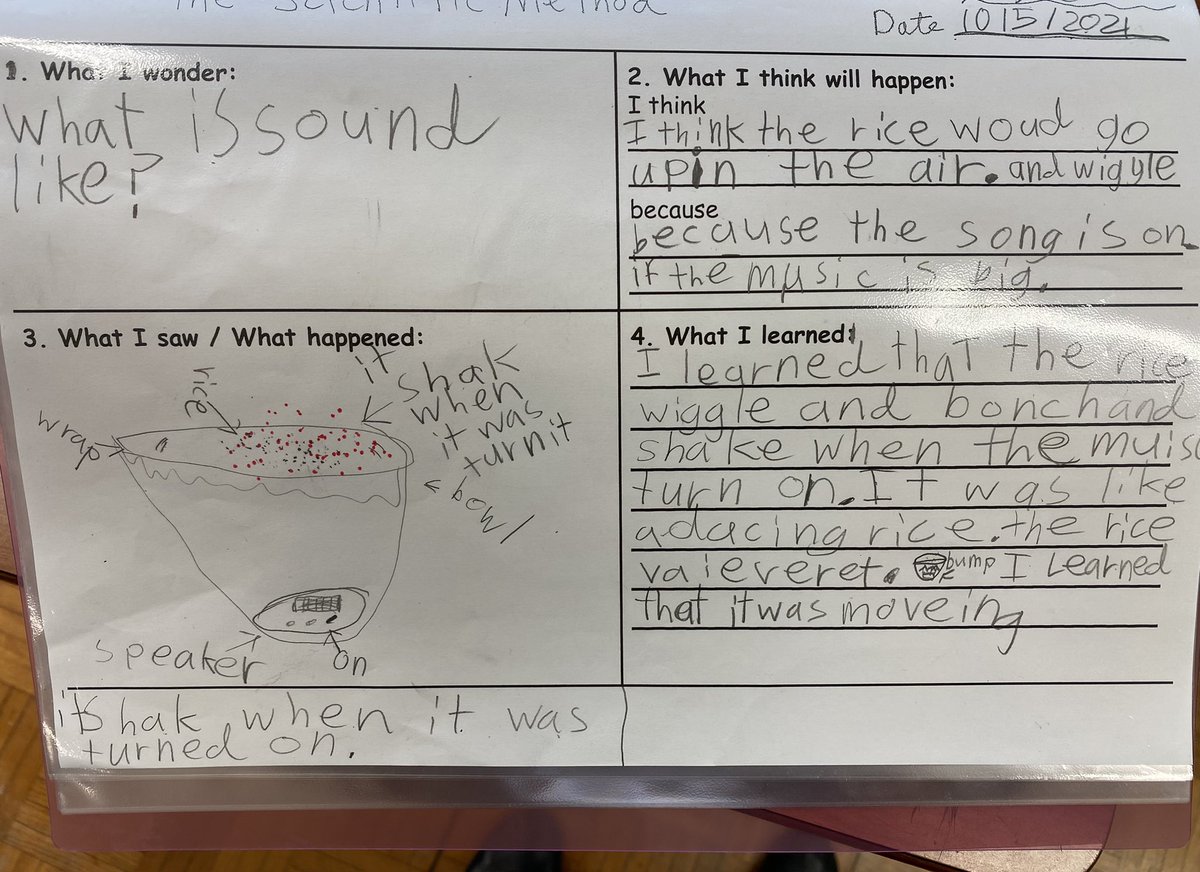 The Scientific Method
Date 10/5/2021
1. What I wonder:
what is sound
like?
2. What I think will happen:
I think
I think the rice woud go
up in the air. and wiggle
because
because the song is on
if the music is big.
3. What I saw / What happened:
it
shak
when
it was
turn it
rice
wrap
bowl
speaker
on
it shak when it was
turned on.
4. What I learned:
I learned that the rice
wiggle and bonch and
shake when the muis
turn on. It was like
a dacing rice. the rice
vaieveret. bump I learned
that it was moveing